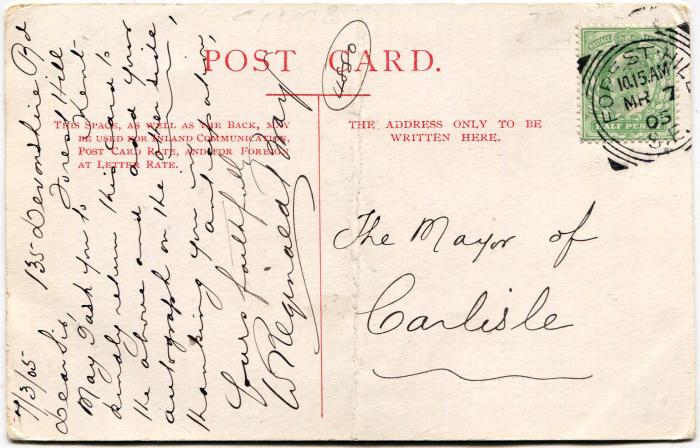 POST CARD.
4880
THIS SPACE, AS WELL AS THE BACK, MAY
BE USED FOR INLAND COMMUNICATION,
POST CARD RATE, AND FOR FOREIGN
AT LETTER RATE.
THE ADDRESS ONLY TO BE
WRITTEN HERE.
FOREST HILL
10.15 AM
MR 7
05
S.E.
HALF PENNY
The Mayor of
Carlisle
135 Devonshire Rd
Forest Hill
Kent
7/3/05
Dear Sir,
May I ask you to
kindly return this card to
the above and add your
autograph on the other side,
thanking you in
anticipation,
Yours faithfully
W Reginald Way